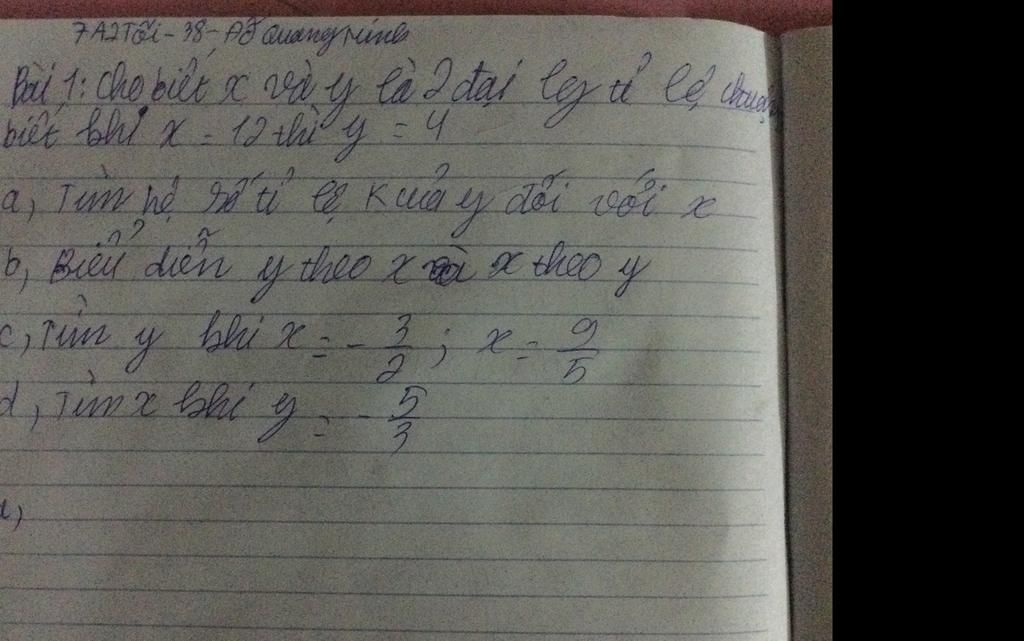 7A2Tối - 38 - Đỗ Quang
Bài 1: Cho biết x và y là 2 đại lg tỉ lệ thuận
biết khi x = 12 thì y = 4
a, Tìm hệ số tỉ lệ k của y đối với x
b, Biểu diễn y theo x và x theo y
c, Tìm y khi x = - 3/2 ; x = 9/5
d, Tìm x khi y = - 5/3
a,